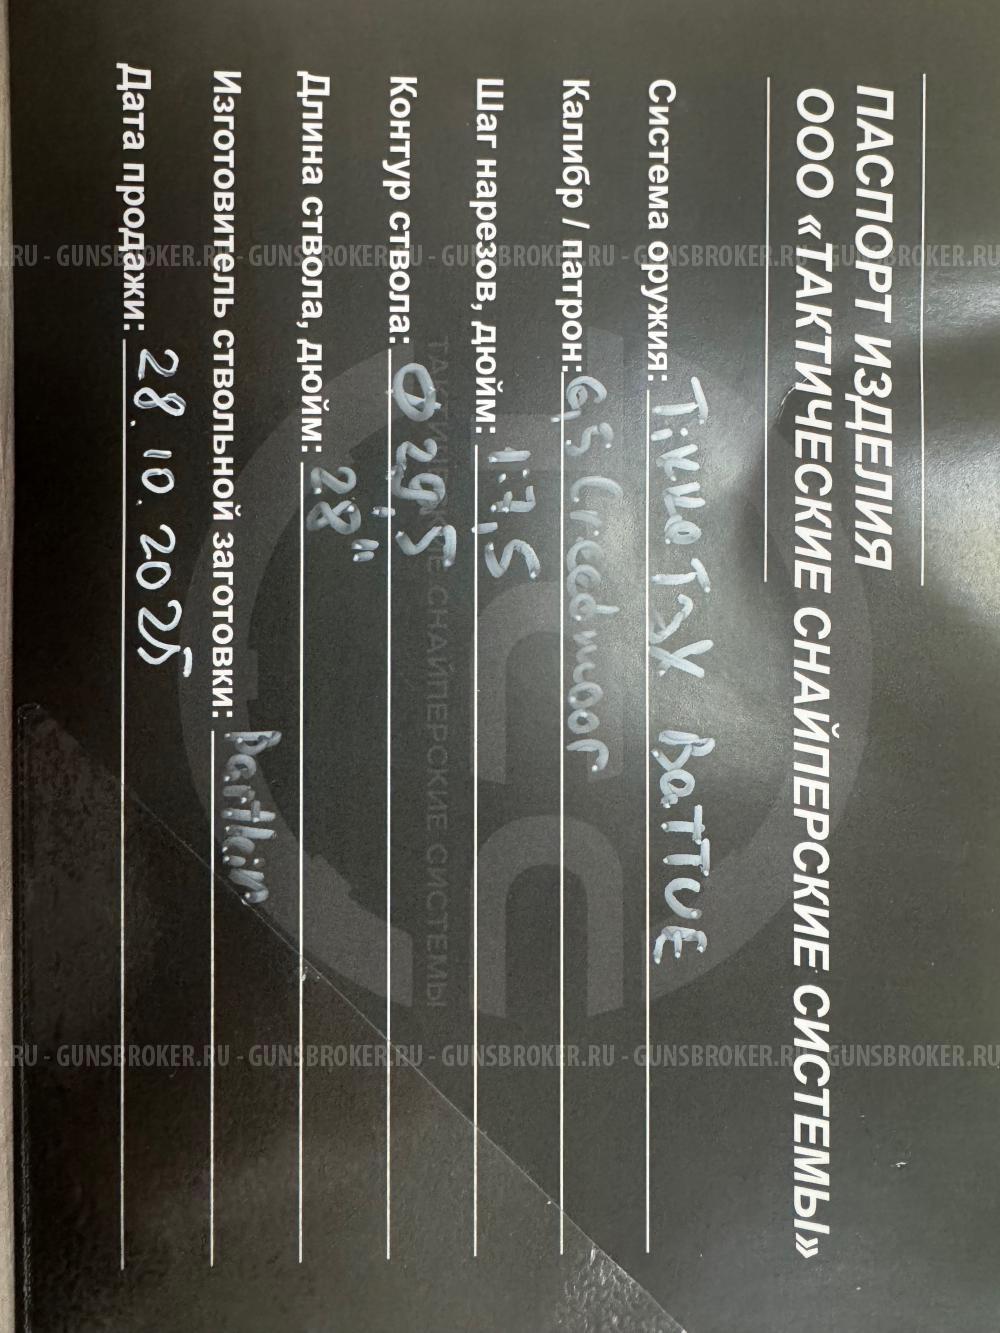 ПАСПОРТ ИЗДЕЛИЯ
ООО «ТАКТИЧЕСКИЕ СНАЙПЕРСКИЕ СИСТЕМЫ»
Система оружия: Tikka T3X BaTTUE
Калибр / патрон: 6,5 Creedmoor
Шаг нарезов, дюйм: 1:7,5
Контур ствола: Ø 29,5
Длина ствола, дюйм: 28"
Изготовитель ствольной заготовки: Bartlein
Дата продажи: 28.10.2025
ТАКТИЧЕСКИЕ СНАЙПЕРСКИЕ СИСТЕМЫ
.RU - GUNSBROKER.RU - GUNSBROKER.RU - GUNSBROKER.RU - GUNSBROKER.RU - GUNSBROKER
.RU - GUNSBROKER.RU - GUNSBROKER.RU - GUNSBROKER.RU - GUNSBROKER.RU - GUNSBROKER